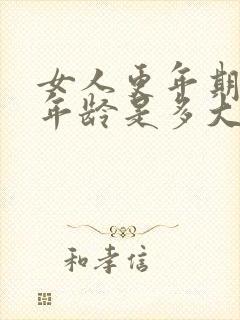 女人更年期
年龄是多大
和孝信